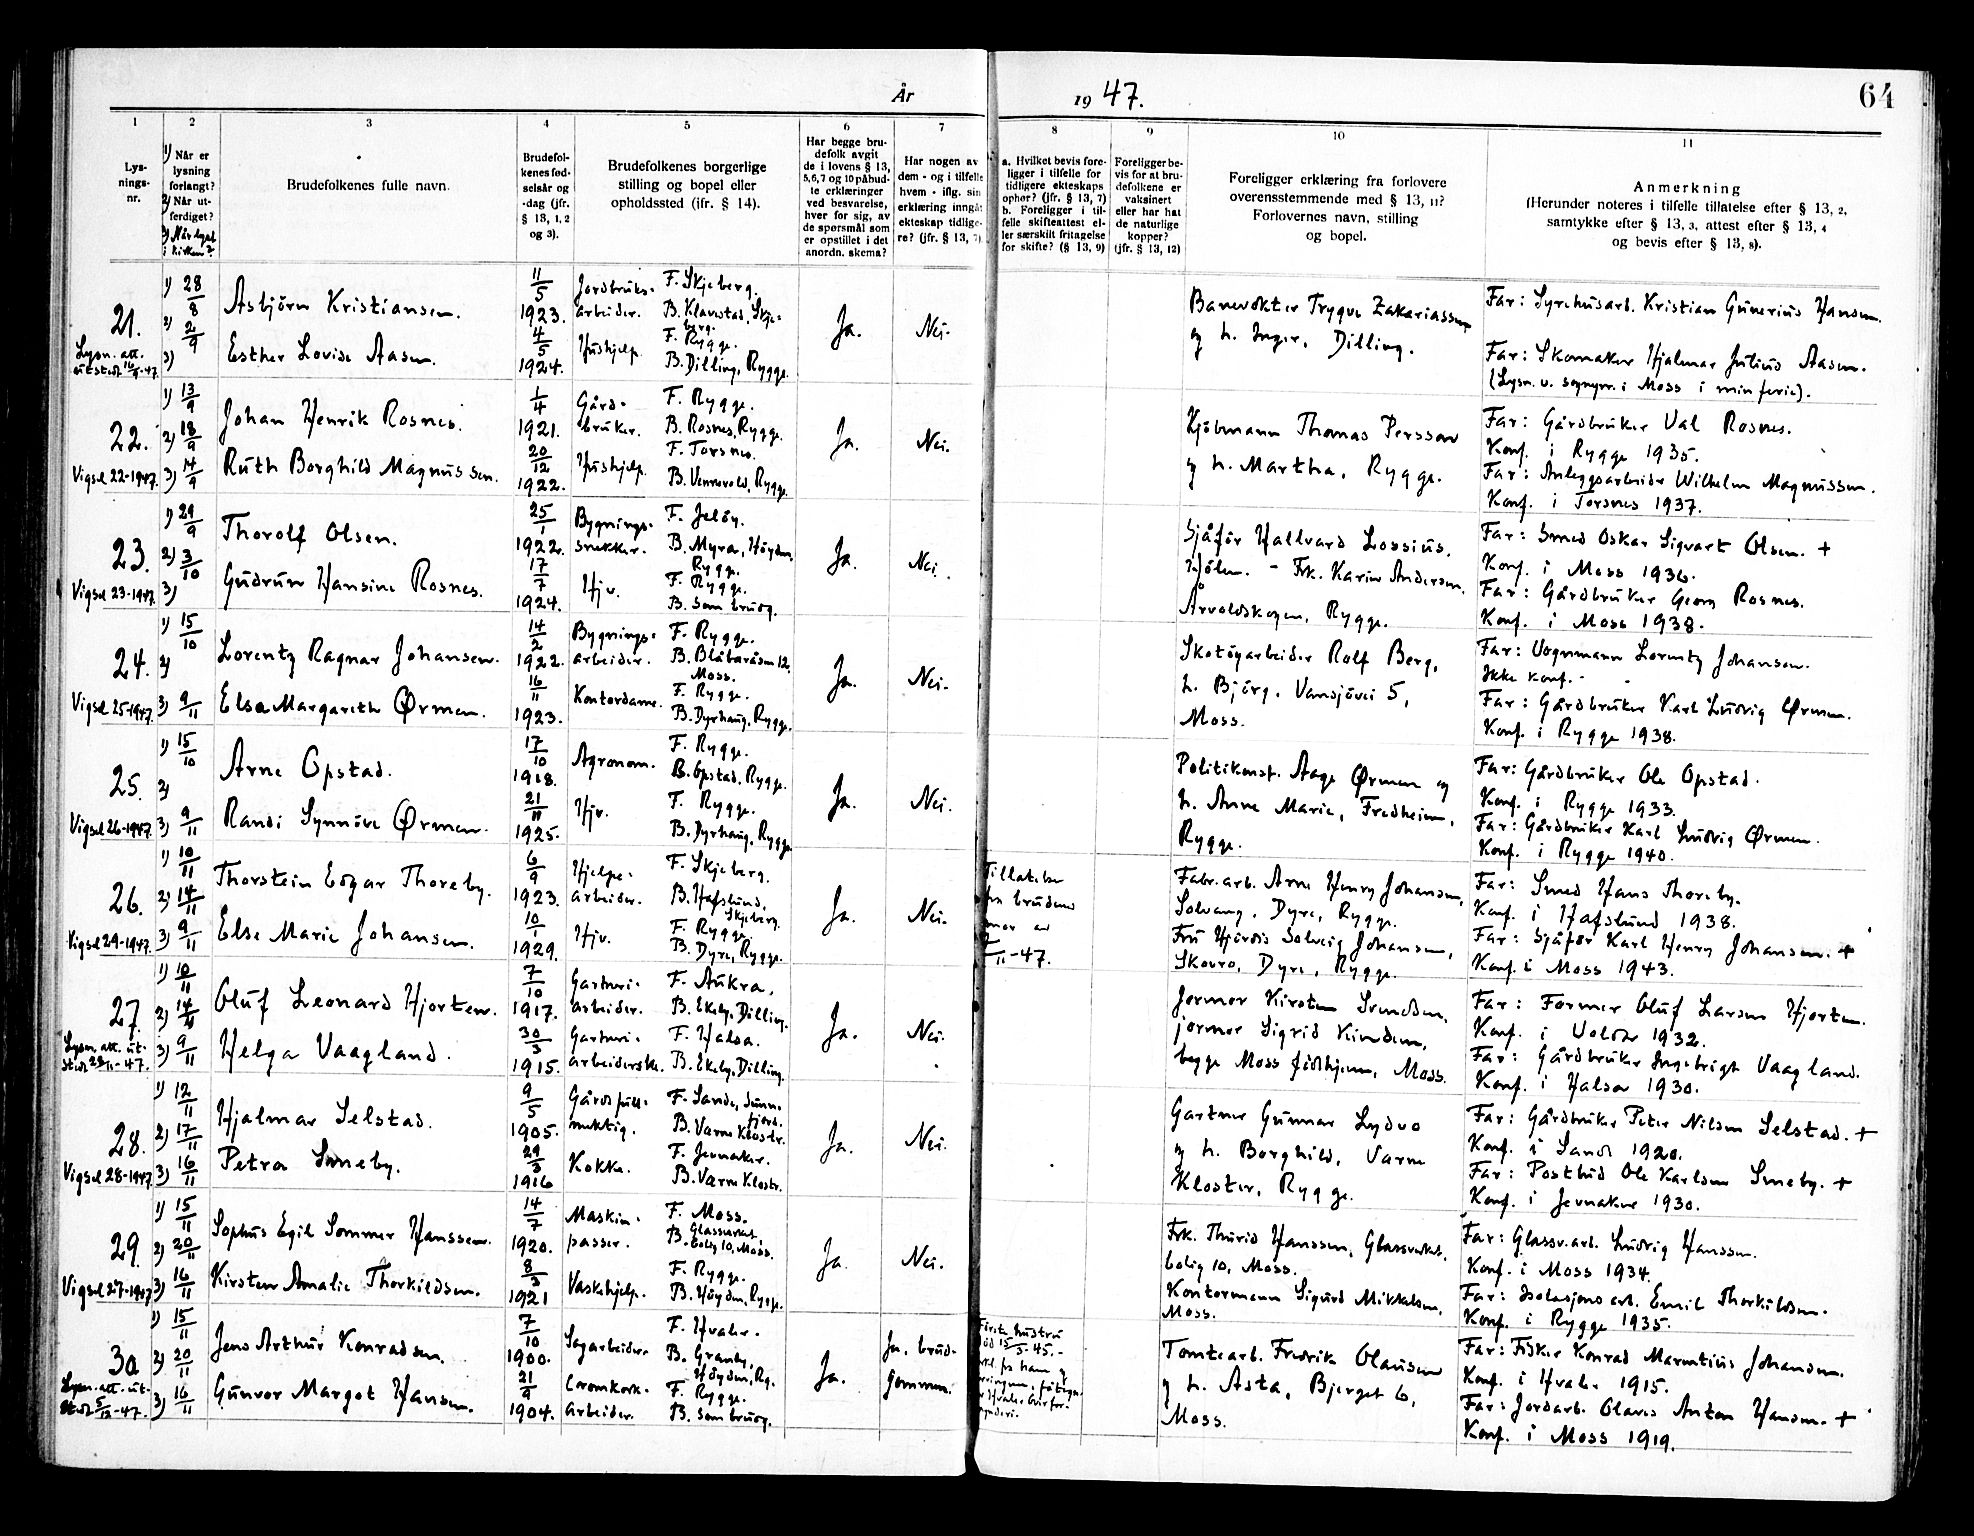 År 1947.
64
1 2 3 4 5 6 7 8 9 10 11
Lys-
nings-
nr.
1) Når er
lysning
forlangt?
2) Når ut-
ferdiget?
3) Når lyst
i kirken?
Brudefolkenes fulle navn.
Brudefol-
kenes fød-
selsår og
-dag (jfr.
§ 13, 1, 2
og 3).
Brudefolkenes borgerlige
stilling og bopel eller
opholdssted (jfr. § 14).
Har begge bru-
defolk avgit
de i lovens § 13,
5, 6, 7 og 10 påbud-
te erklæringer
ved besvarelse,
hver for sig, av
de spørsmål som
er opstillet i det
anordn. skema?
Har nogen av
dem - og i tilfelle
hvem - iflg. sin
erklæring inngåt
ekteskap tidlige-
re? (jfr. § 13, 7)
a. Hvilket bevis fore-
ligger i tilfelle for
tidligere ekteskaps
ophør? (jfr. § 13, 7)
b. Foreligger i til-
felle skifteattest el-
ler særskilt fritagelse
for skifte? (§ 13, 9)
Foreligger be-
vis for at bru-
defolkene er
vaksinert
eller har hat
de naturlige
kopper?
(jfr. § 13, 12)
Foreligger erklæring fra forlovere
overensstemmende med § 13, 11?
Forlovernes navn, stilling
og bopel.
Anmerkning
(Herunder noteres i tilfelle tillatelse efter § 13, 2,
samtykke efter § 13, 3, attest efter § 13, 4
og bevis efter § 13, 8).
21.
Lysn. att.
utstedt 16/9-47.
1) 28/8
2) 2/9
3)
Asbjörn Kristiansen.
Esther Lovise Aasen.
11/5
1923.
4/5
1924.
Jordbruks-
arbeider.
Hushjelp.
F. Skjeberg.
B. Klavestad, Skje-
berg.
F. Rygge.
B. Dilling, Rygge.
Ja.
Nei.
Banevokter Trygve Zakariassen
og h. Inger, Dilling.
Far: Syrehusarb. Kristian Gunerius Hansen.
Far: Skomaker Hjalmar Julius Aasen.
(Lysn. v. sognepr. i Moss i min ferie).
22.
Vigsel 22-1947.
1) 13/9
2) 18/9
3) 14/9
Johan Henrik Rosnes.
Ruth Borghild Magnussen.
1/4
1921.
20/12
1922.
Gård-
bruker.
Hushjelp.
F. Rygge.
B. Rosnes, Rygge.
F. Torsnes.
B. Vennevold, Rygge.
Ja.
Nei.
Kjöbmann Thomas Persson
og h. Martha, Rygge.
Far: Gårdbruker Val Rosnes.
Konf. i Rygge 1935.
Far: Anleggsarbeider Wilhelm Magnussen.
Konf. i Torsnes 1937.
23.
Vigsel 23-1947.
1) 29/9
2) 3/10
3)
Thorolf Olsen.
Gudrun Hansine Rosnes.
25/1
1922.
17/7
1924.
Bygnings-
snekker.
Hjv.
F. Jelöy.
B. Myra, Höyden,
Rygge.
F. Rygge.
B. Som brudg.
Ja.
Nei.
Sjåför Hallvard Lossius,
Hjölen. - Frk. Karin Andersen,
Årvoldskogen, Rygge.
Far: Smed Oskar Sigvart Olsen. +
Konf. i Moss 1936.
Far: Gårdbruker Georg Rosnes.
Konf. i Moss 1938.
24.
Vigsel 25-1947.
1) 15/10
2)
3) 9/11
Lorentz Ragnar Johansen.
Elsa Margareth Ørmen.
14/2
1922.
16/11
1923.
Bygnings-
arbeider.
Kontordame.
F. Rygge.
B. Blåbæråsen 12,
Moss.
F. Rygge.
B. Dyrhaug, Rygge.
Ja.
Nei.
Skotöyarbeider Rolf Berg,
h. Björg, Vansjövei 5,
Moss.
Far: Vognmann Lorentz Johansen.
Ikke konf.
Far: Gårdbruker Karl Ludvig Ørmen.
Konf. i Rygge 1938.
25.
Vigsel 26-1947.
1) 15/10
2)
3) 9/11
Arne Opstad.
Randi Synnöve Ørmen.
17/10
1918.
21/11
1925.
Agronom.
Hjv.
F. Rygge.
B. Opstad, Rygge.
F. Rygge.
B. Dyrhaug, Rygge.
Ja.
Nei.
Politikonst. Aage Ørmen og
h. Anne Marie, Fredheim,
Rygge.
Far: Gårdbruker Ole Opstad.
Konf. i Rygge 1933.
Far: Gårdbruker Karl Ludvig Ørmen.
Konf. i Rygge 1940.
26.
Vigsel 29-1947.
1) 10/11
2) 14/11
3) 9/11
Thorstein Edgar Thoreby.
Else Marie Johansen.
6/9
1923.
10/1
1929.
Hjelpe-
arbeider.
Hjv.
F. Skjeberg.
B. Hafslund,
Skjeberg.
F. Rygge.
B. Dyre, Rygge.
Ja.
Nei.
Tillatelse
fra brudens
mor av
/11-47.
Fabr.arb. Arne Henry Johansen,
Solvang, Dyre, Rygge.
Fru Hjördis Solveig Johansen,
Skovro, Dyre, Rygge.
Far: Smed Hans Thoreby.
Konf. i Hafslund 1938.
Far: Sjåför Karl Henry Johansen. +
Konf. i Moss 1943.
27.
Lysn. att. ut-
stedt 28/11-47.
1) 10/11
2) 14/11
3) 9/11
Oluf Leonard Hjorten.
Helga Vaagland.
7/10
1917.
30/3
1915.
Gartneri-
arbeider.
Gartneri-
arbeiderske.
F. Aukra.
B. Ekeby, Dilling.
F. Halsa.
B. Ekeby, Dilling.
Ja.
Nei.
Jormor Kirsten Svendsen,
jormor Sigrid
begge Moss födehjem, Moss.
Far: Former Oluf Larsen Hjorten.
Konf. i 1932.
Far: Gårdbruker Ingebrigt Vaagland.
Konf. i Halsa 1930.
28.
Vigsel 28-1947.
1) 12/11
2) 17/11
3) 16/11
Hjalmar Selstad.
Petra Smeby.
9/5
1905.
29/3
1916
Gårdsfull-
mektig.
Kokke.
F. Sande, Sunn-
fjord.
B. Værne Kloster.
F. Jevnaker.
B. Værne Kloster.
Ja.
Nei.
Gartner Gunnar Lydvo
og h. Borghild, Værne
Kloster, Rygge.
Far: Gårdbruker Peter Nilsen Selstad. +
Konf. i Sande 1920.
Far: Postbud Ole Karlsen Smeby. +
Konf. i Jevnaker 1930.
29.
Vigsel 27-1947
1) 15/11
2) 20/11
3) 16/11
Sophus Egil Sommer Hanssen.
Kirsten Amalie Thorkildsen.
14/7
1920.
8/3
1921
Maskin-
passer.
Vaskehjelp.
F. Moss.
B. Glassverket,
bolig 10, Moss.
F. Rygge.
B. Höyden, Rygge.
Ja.
Nei.
Frk. Thurid Hanssen, Glassverket,
bolig 10, Moss.
Kontormann Sigurd Mikkelsen,
Moss.
Far: Glassv.arb. Ludvig Hanssen.
Konf. i Moss 1934.
Far: Isolasjonsarb. Emil Thorkildsen.
Konf. i Rygge 1935.
30
Lysn. att. ut-
stedt 5/12-47.
1) 15/11
2) 20/11
3) 16/11
Jens Arthur Konradsen.
Gunvor Margot Hansen.
7/10
1900.
21/9
1904.
Sagarbeider.
Cromkork-
arbeider.
F. Hvaler.
B. Granby,
Höyden, Ry.
F. Rygge.
B. Som brudg.
Ja.
Ja, brud-
gommen.
Første hustru
död 15/5-45.-
erkl. fra ham og
Tomtearb. Fredrik Olausen
og h. Asta, Bjerget 6,
Moss.
Far: Fisker Konrad Marentius Johansen.
Konf. i Hvaler 1915.
Far: Jordarb. Olaves Anton Hansen. +
Konf. i Moss 1919.